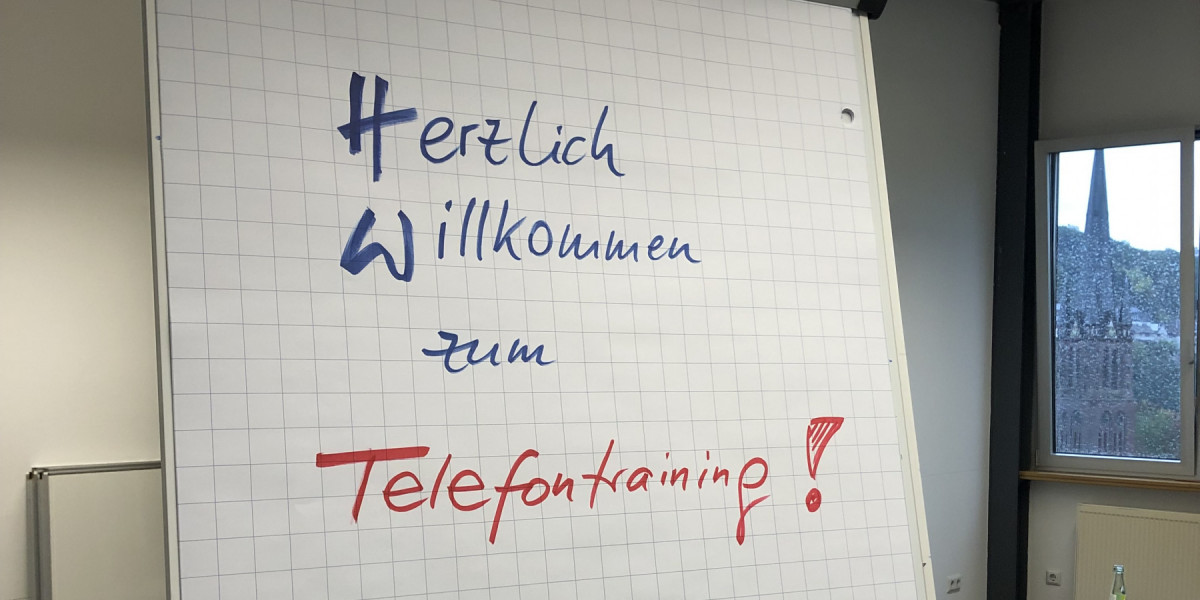 Herzlich
Willkommen
zum
Telefontraining!